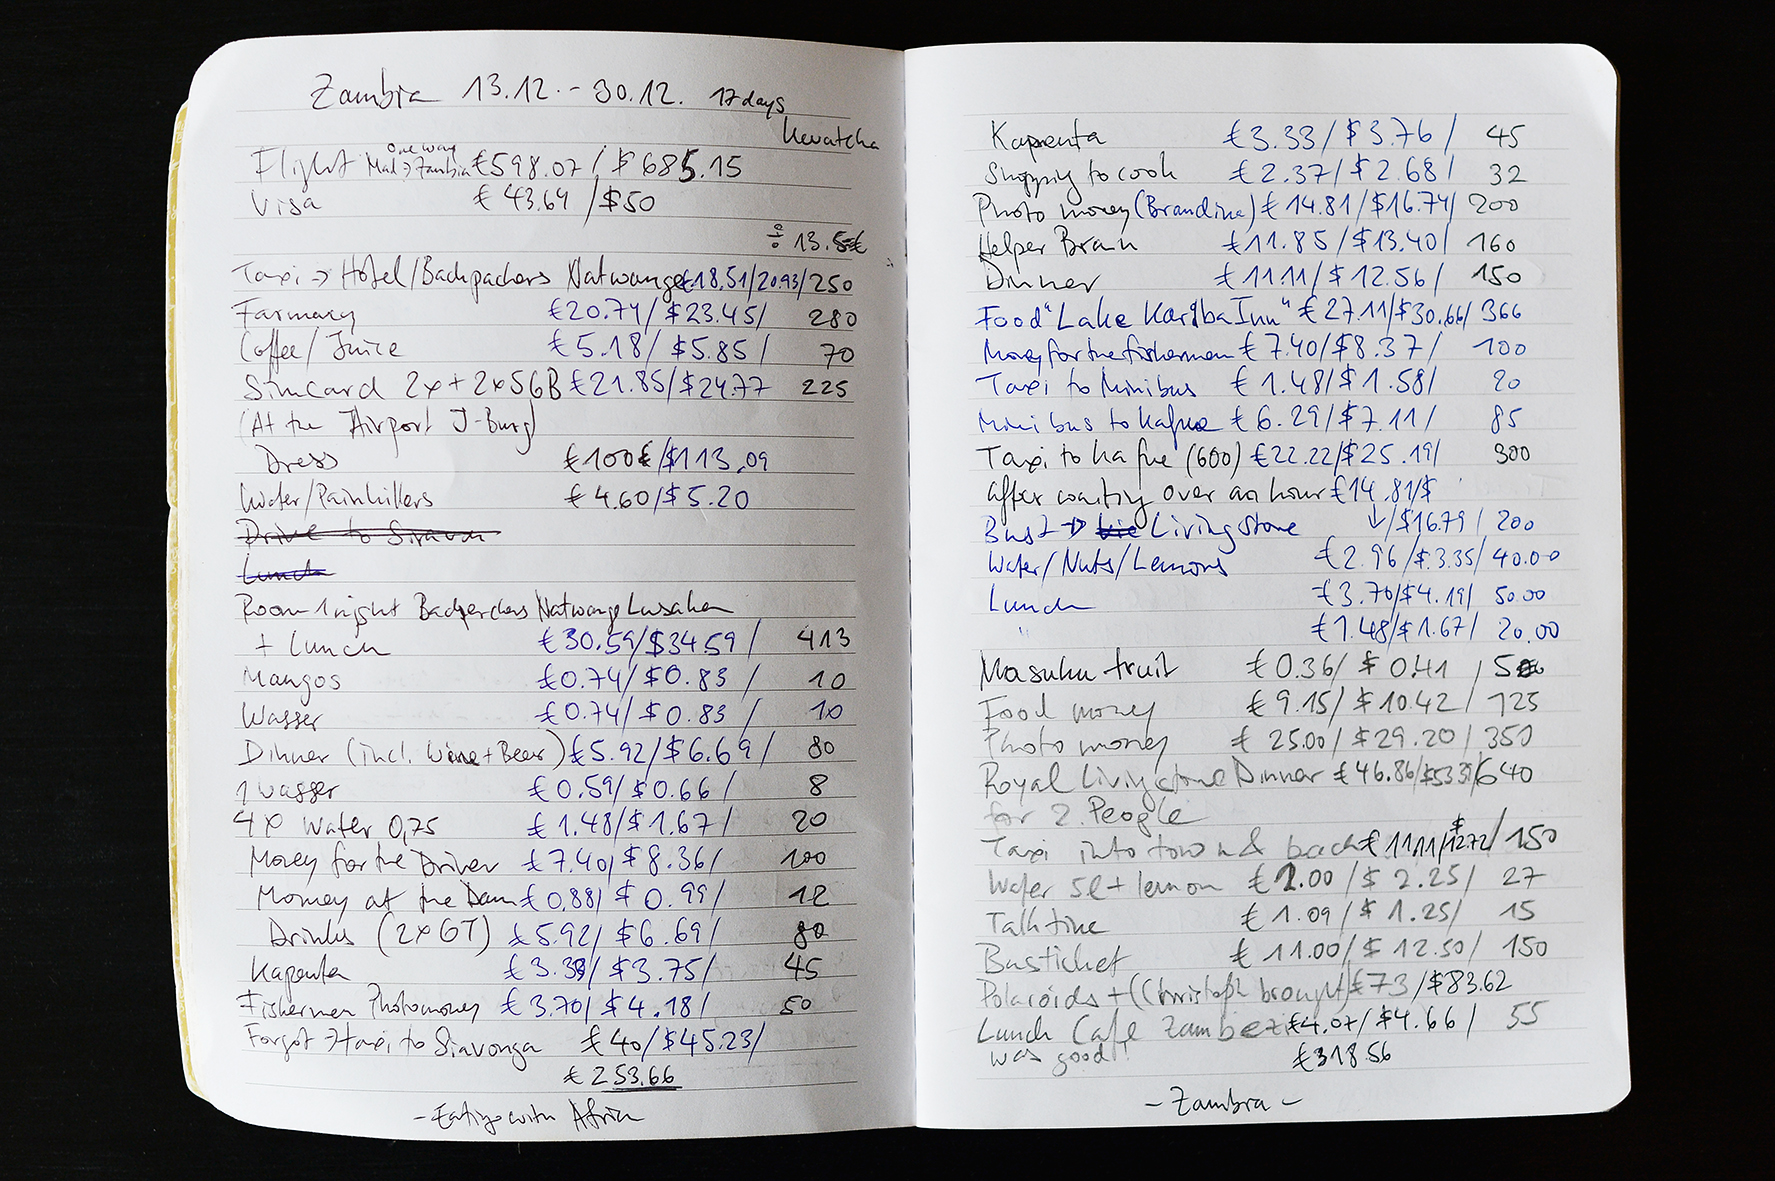 Zambia 13.12. - 30.12. 17 days
Kwatcha
Flight one way Mad → Zambia €598.07 / $685.15
Visa €43.69 / $50
÷ 13.5 €
Taxi → Hotel/Backpackers Natwange €18.51/20.93/250
Farmacy €20.74/ $23.45/ 280
Coffee/Juice €5.18/ $5.85 / 70
Simcard 2x + 2x5GB €21.85/$24.77 225
(At the Airport J-Burg)
Dress €100€/$113,09
Water/Painkillers €4.60/$5.20
Drive to
Lunch
Room 1 night Backpackers Natwange Lusaka
+ Lunch €30.59/$34.59 / 413
Mangos €0.74/ $0.83 / 10
Wasser €0.74/ $0.83 / 10
Dinner (incl. Wine+Beer) €5.92/$6.69/ 80
1 Wasser €0.59/$0.66 / 8
4x Water 0,75 €1.48/$1.67/ 20
Money for the Driver €7.40/$8.36/ 100
Money at the Dam €0,88/ $0.99/ 12
Drinks (2x GT) €5.92/ $6.69/ 80
Kapenta €3.33/ $3.75/ 45
Fishermen Photomoney €3.70/ $4.18/ 50
Forgot → taxi to Siavonga €40/$45.23/
€253.66
- Eating with Africa
Kapenta €3.33/$3.76/ 45
Shopping to cook €2.37/$2.68/ 32
Photo money (Brandina) €14.81/$16.74/ 200
Helper Brain €11.85/$13.40/ 160
Dinner €11.11/$12.56/ 150
Food "Lake Kariba Inn" €27.11/$30.66/ 366
Money for the fishermen €7.40/$8.37/ 100
Taxi to Minibus €1.48/$1.58/ 20
Minibus to Kafue €6.29/$7.11/ 85
Taxi to Kafue (600) €22.22/$25.19/ 300
after waiting over an hour €14.81/$
Bus → Livingstone ↓/$16.79 / 200
Water/Nuts/Lemons €2.96/$3.35/ 40.00
Lunch €3.70/$4.19/ 50.00
" €1.48/$1.67/ 20.00
Masuku fruit €0.36/ $0.41 / 5
Food money €9.15/ $10.42 / 125
Photo money €25.00/ $29.20 / 350
Royal Livingstone Dinner €46.86/$53.39/640
for 2 People
Taxi into town & back €11.11/$12.72/ 150
Water 5l + lemon €2.00 / $2.25/ 27
Talktime €1.09 / $1.25/ 15
Busticket €11.00/ $12.50/ 150
Polaroids + (Christoph brought) €73 /$83.62
Lunch Cafe Zambezi €4.07/ $4.66 / 55
was good!
€318.56
- Zambia -